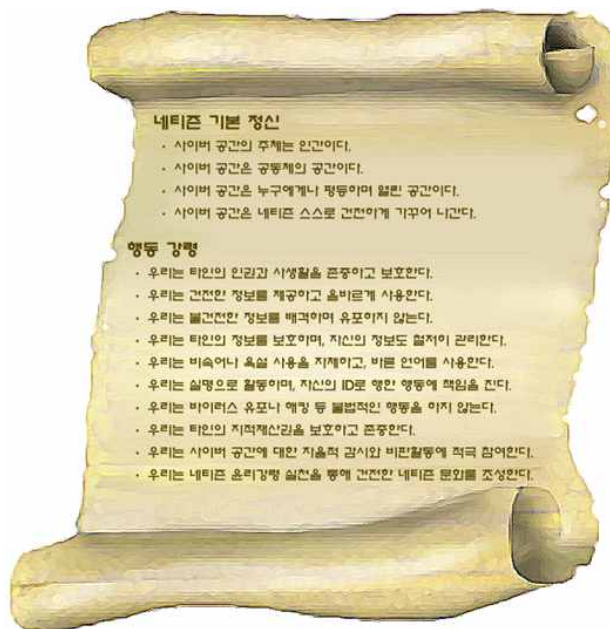 네티즌 기본 정신
· 사이버 공간의 주체는 인간이다.
· 사이버 공간은 공동체의 공간이다.
· 사이버 공간은 누구에게나 평등하며 열린 공간이다.
· 사이버 공간은 네티즌 스스로 건전하게 가꾸어 나간다.
행동 강령
· 우리는 타인의 인권과 사생활을 존중하고 보호한다.
· 우리는 건전한 정보를 제공하고 올바르게 사용한다.
· 우리는 불건전한 정보를 배격하며 유포하지 않는다.
· 우리는 타인의 정보를 보호하며, 자신의 정보도 철저히 관리한다.
· 우리는 비속어나 욕설 사용을 자제하고, 바른 언어를 사용한다.
· 우리는 실명으로 활동하며, 자신의 ID로 행한 행동에 책임을 진다.
· 우리는 바이러스 유포나 해킹 등 불법적인 행동을 하지 않는다.
· 우리는 타인의 지적재산권을 보호하고 존중한다.
· 우리는 사이버 공간에 대한 자율적 감시와 비판활동에 적극 참여한다.
· 우리는 네티즌 윤리강령 실천을 통해 건전한 네티즌 문화를 조성한다.